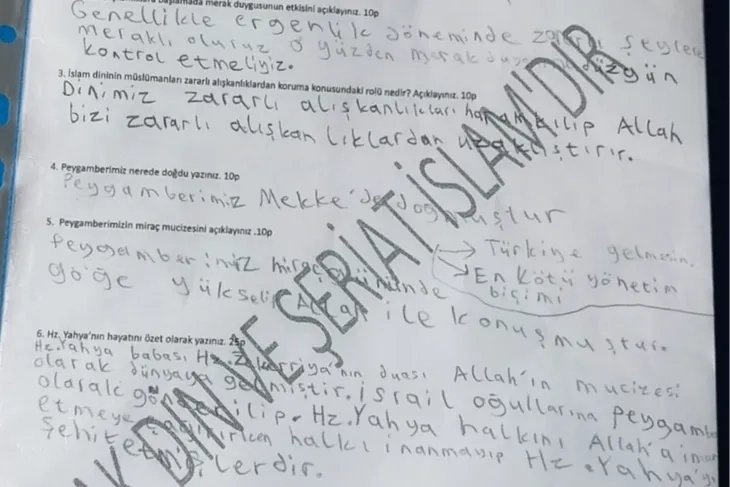 başlamada merak duygusunun etkisini açıklayınız. 10p
Genellikle ergenlik döneminde zararlı şeylere
meraklı oluruz o yüzden merak düzgün
kontrol etmeliyiz.
3. İslam dininin müslümanları zararlı alışkanlıklardan koruma konusundaki rolü nedir? Açıklayınız. 10p
Dinimiz zararlı alışkanlıkları haram kılıp Allah
bizi zararlı alışkanlıklardan uzaklıştırır.
4. Peygamberimiz nerede doğdu yazınız. 10p
Peygamberimiz Mekke'de doğmuştur
5. Peygamberimizin miraç mucizesini açıklayınız .10p
Peygamberimiz miraç gününde
göğe yükselip Allah ile konuşmuştur.
→ Türkiye gelmesin.
→ En kötü yönetim
biçimi
6. Hz. Yahya'nın hayatını özet olarak yazınız. 25p
Hz. Yahya babası Hz. Zekerriya'nın duası Allah'ın mucizesi
olarak dünyaya gelmiştir. İsrail oğullarına peygamb
olarak gönderilip. Hz. Yahya halkını Allah'a iman
etmeye çağırırken halkı inanmayıp Hz. Yahya'yı
şehit etmişlerdir.
DİN VE ŞERİAT İSLAM'DIR